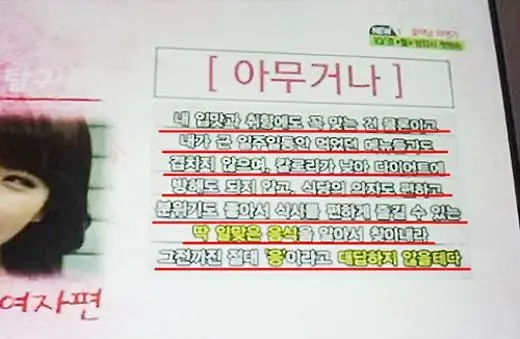 NEW
[ 아무거나 ]
탐구
내 입맛과 취향에도 꼭 맞는 건 물론이고
내가 근 일주일동안 먹었던 메뉴들과도
겹치지 않으며, 칼로리가 낮아 다이어트에
방해도 되지 않고, 식당의 의자도 편하고
분위기도 좋아서 식사를 편하게 즐길 수 있는
딱 알맞은 음식을 알아서 찾아내라
그전까진 절대 '응'이라고 대답하지 않을테다
여자편